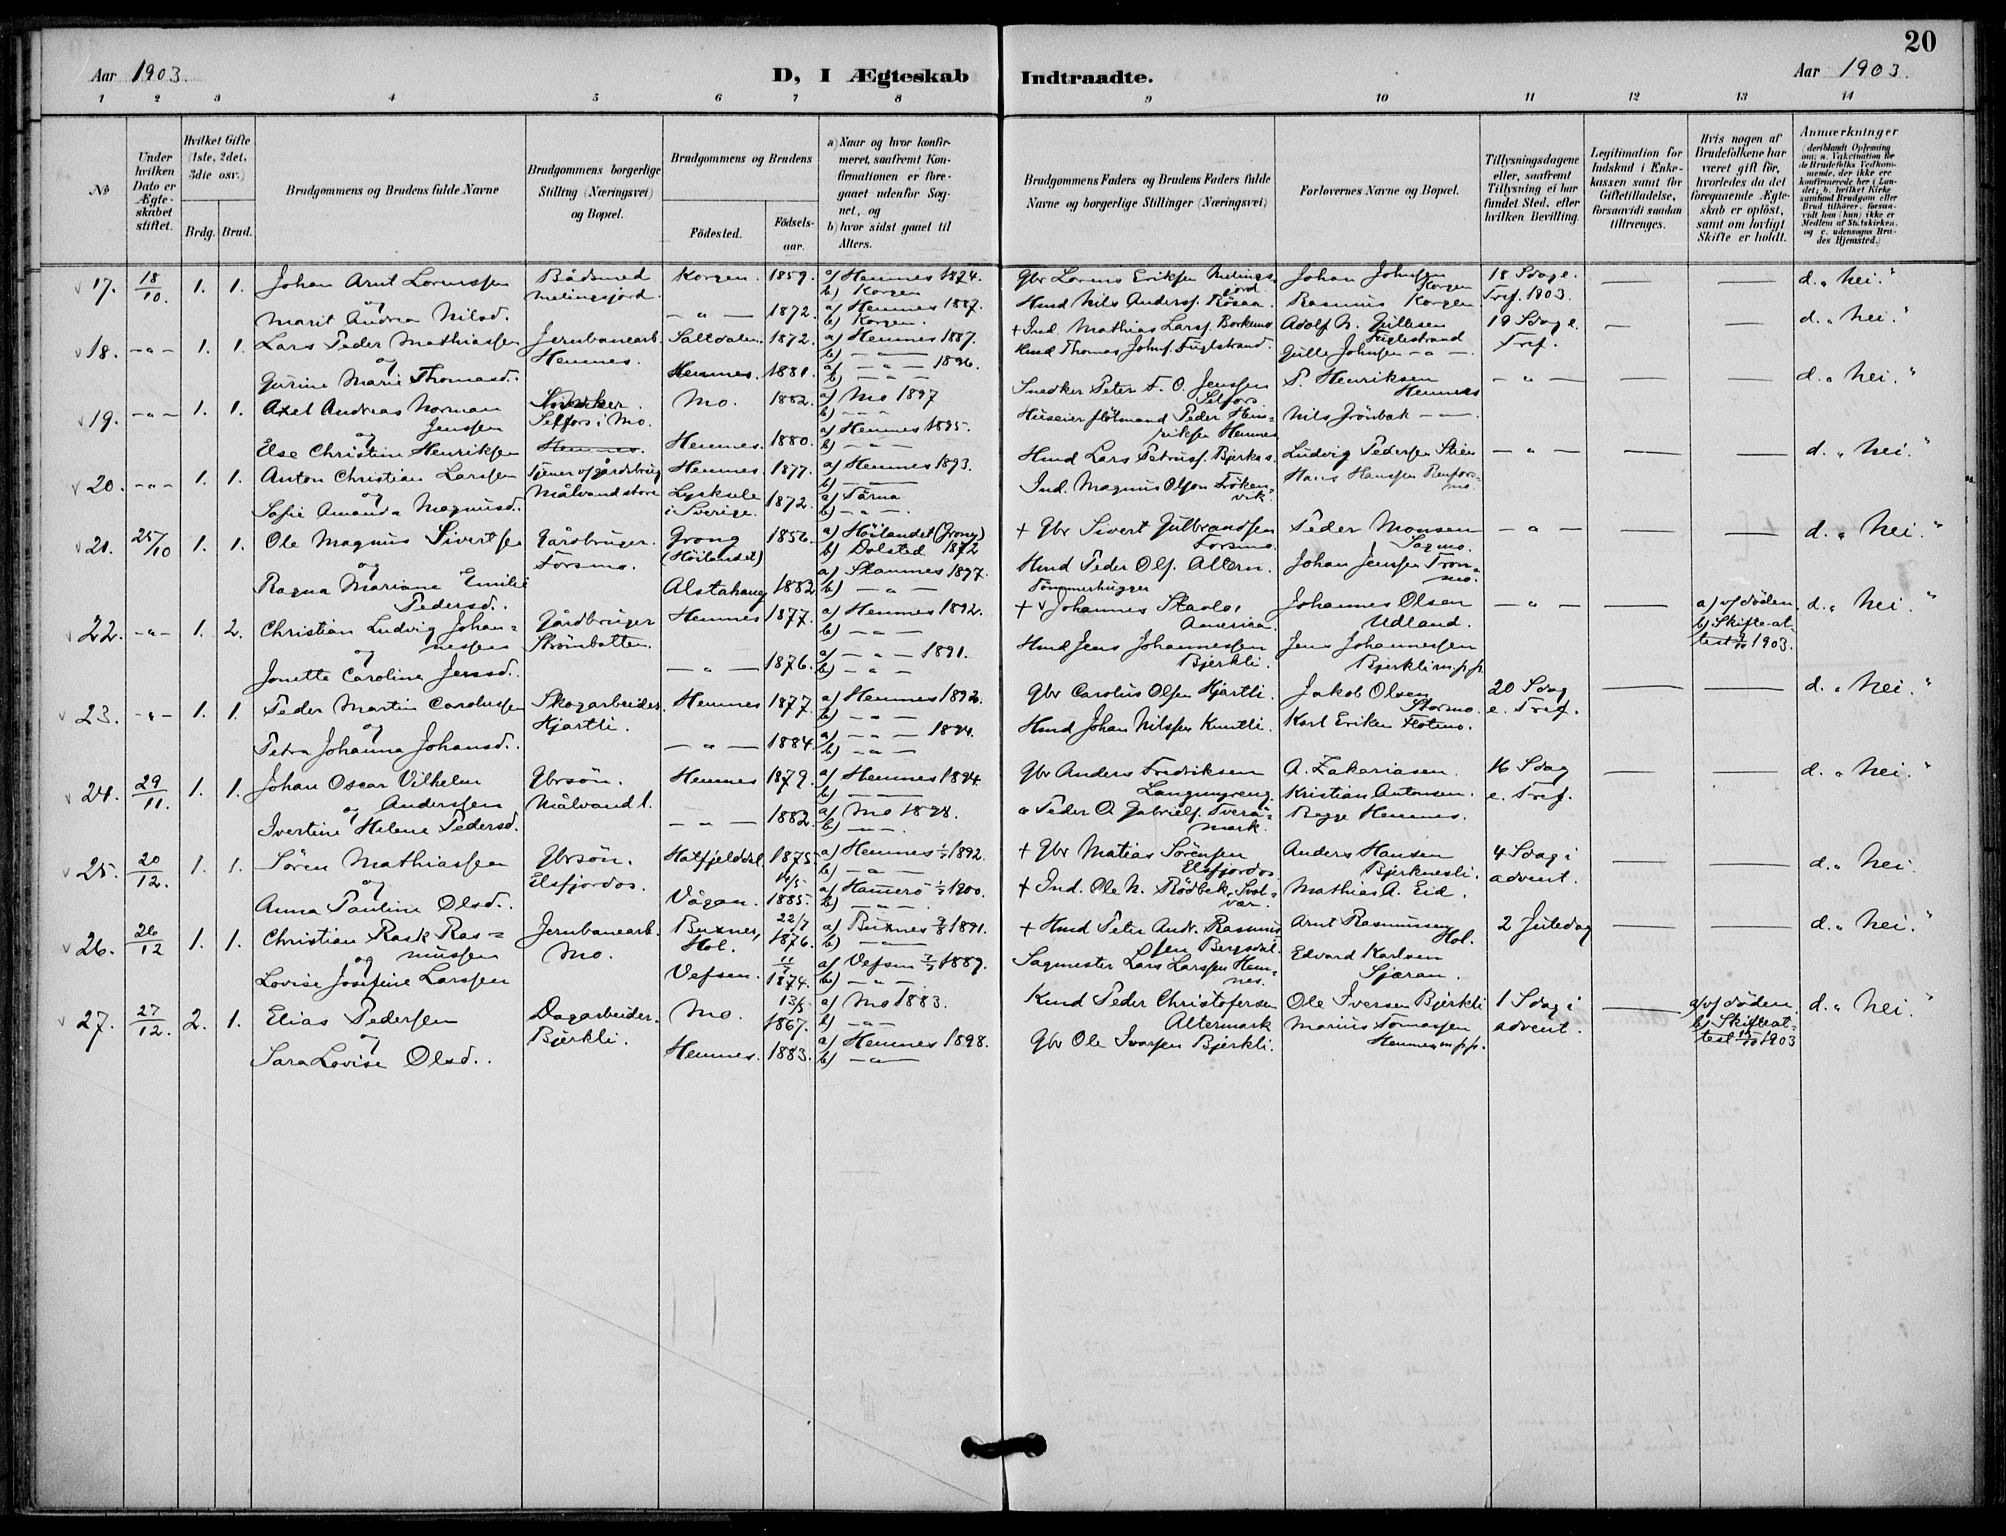 20
Aar 1903.
D, I Ægteskab
Indtraadte.
Aar 1903.
1 2 3 4 5 6 7 8 9 10 11 12 13 14
No
Under hvilken Dato er Ægteskabet stiftet.
Hvilket Gifte (1ste, 2det, 3die osv.)
Brdg. Brud.
Brudgommens og Brudens fulde Navne
Brudgommens borgerlige Stilling (Næringsvei) og Bopæl.
Brudgommens og Brudens
Fødested.
Fødselsaar.
a) Naar og hvor konfirmeret, saafremt Konfirmationen er foregaaet udenfor Sognet, og
b) hvor sidst gaaet til Alters.
Brudgommens Faders og Brudens Faders fulde Navne og borgerlige Stillinger (Næringsvei)
Forlovernes Navne og Bopæl.
Tillysningsdagene eller, saafremt Tillysning ei har fundet Sted, efter hvilken Bevilling.
Legitimation for Indskud i Enkekassen samt for Giftetilladelse, forsaavidt saadan tiltrænges.
Hvis nogen af Brudefolkene har været gift før, hvorledes da det foregaaende Ægteskab er opløst, samt om lovligt Skifte er holdt.
Anmærkninger (deriblandt Oplysning om: a. Vakcination for de Brudefolks Vedkommende, der ikke ere konfirmerede her i Landet; b. hvilket Kirkesamfund Brudgom eller Brud tilhører, forsaavidt han (hun) ikke er Medlem af Statskirken, og c. udensogns Brudes Hjemsted.)
17. 18/10. 1. 1. Johan Arnt Lorenssen
og
Marit Andrea Nilsd.
Bådsmed
Korgen. 1859. a) Hemnes 1874.
b) Korgen
— " — 1872. a) Hemnes 1887.
b) Korgen.
Gbr Lorens Eriksen
Kmd Nils Anderss. Røsaa.
Johan Johnsen
Korgen
Rasmus Korgen
18 Sdag e.
Tref. 1903.
— — d. " Nei. "
18. -"- 1. 1. Lars Peder Mathiassen
og
Gurine Marie Thomasd.
Jernbanearb.
Hemnes.
Saltdalen. 1872. a) Hemnes 1887.
b) — " —
Hemnes. 1881. a) — " — 1896.
b) — " —
+ Ind. Mathias Larss.
Kmd Thomas Johns. Fuglstrand.
Adolf N. Gullesen
Fuglestrand
Gulle Johnsen — " —
19 Sdag e.
Tref.
— — d. " Nei. "
19. -"- 1. 1. Axel Andreas Norman
Jenssen
og
Else Christine Henriksen
Snedker.
Selfors i Mo.
Hemnes.
Mo. 1882. a) Mo 1897
b) — " —
Hemnes. 1880. a) Hemnes 1895.
b) — " —
Snedker Peter F. O. Jenssen
Selfors
Huseier fløtmand Peder Henriksen
Hemnes
P. Henriksen
Hemnes
Nils Grönbak — " —
— " — — — d. " Nei. "
20. -"- 1. 1. Anton Christian Larssen
og
Sofie Amanda Magnusd.
Tjener og gårdsbrug
Målvandstore
Hemnes. 1877. a) Hemnes 1893.
b) — " —
Lycksele
i Sverige. 1872. a) Tärna
b) — " —
Kmd Lars Petruss. Bjerkås.
Ind. Magnus Olsen
Ludvig Pedersen Stien
Hans Hanssen
— " — — — d. " Nei. "
21. 25/10 1. 1. Ole Magnus Sivertsen
og
Ragna Mariane Emilie
Pedersd.
Gårdbruger.
Forsmo.
Grong
(Höilandet) 1856. a) Höilandet (Grong)
b) Dolsted 1872
Alstahaug 1882 a) Stamnes 1897.
b) — " —
+ Gbr Sivert Gulbrandsen
Forsmo.
Kmd Peder Ols. Altern.
Peder Monsen
Sagmo.
Johan Jenssen Tronmo.
— " — — d. " Nei. "
22. -"- 1. 2. Christian Ludvig Johannessen
og
Jonette Caroline Jensd.
Gårdbruger
Strömbotten.
Hemnes 1877. a) Hemnes 1892.
b) — " —
— " — 1876. a) — " — 1891.
b) — " —
Tömmerhugger
+ v Johannes
America.
Kmd Jens Johannessen
Bjerkli.
Johannes Olsen
Udland.
Jens Johannessen
Bjerkli m.p.p.
— " — — a) v/ döden
b) Skifte-attest 9/10 1903.
d. " Nei. "
23. -"- 1. 1. Peder Martin Carolussen
og
Petra Johanna Johansd.
Skogarbeider
Hjartli.
Hemnes 1877. a) Hemnes 1892.
b) — " —
— " — 1884. a) — " — 1894.
b) — " —
Gbr Carolus Olsen Hjartli.
Kmd Johan Nilssen Kuntli.
Jakob Olsen
Stormo.
Karl Eriksen Flotmo.
20 Sdag
e. Tref.
— — d. " Nei. "
24. 29/11. 1. 1. Johan Oscar Vilhelm
Anderssen
og
Ivertine Helene Pedersd.
Gbrsön.
Målvand l.
Hemnes 1879. a) Hemnes 1894.
b) — " —
— " — 1882. a) Mo 1898.
b) — " —
Gbr Anders Fredriksen
" Peder O. Gabriels. Tveråmark.
A. Zakariasen.
Kristian Antonsen.
Begge Hemnes.
16 Sdag
e. Tref.
— — d. " Nei. "
25. 20/12. 1. 1. Sören Mathiassen
og
Anna Pauline Olsd.
Gbrsön.
Elsfjordos.
Hatfjelddal. 1875 a) Hemnes 1892.
b) — " —
Vågan. 14/5 1885. a) Hamerö 1900.
b) — " —
+ Gbr Matias Sörensen
Elsfjordos
+ Ind. Ole N. Rödbek, Svolvær.
Anders Hansen
Bjerknesli.
Mathias A. Eid.
4 Sdag i
advent.
— — d. " Nei.
26. 26/12 1. 1. Christian Rask Rasmussen
og
Lovise Josefine Larssen
Jernbanearb.
Mo.
Buxnes,
Hol. 22/7 1876. a) Buxnes 1891.
b) — " —
Vefsen. 11/7 1874. a) Vefsen 1889.
b) — " —
+ Kmd Peter Andr. Rasmussen
Bergsdal.
Sagmester Lars Larssen Hemnes.
Arnt Rasmussen
Hol.
Edvard Karlsen
Sjæran.
2 Juledag
— — d. " Nei. "
27. 27/12. 2. 1. Elias Pedersen
og
Sara Lovise Olsd.
Dagarbeider.
Bjerkli.
Mo. 13/5 1867. a) Mo 1883.
b) — " —
Hemnes. 1883. a) Hemnes 1898.
b) — " —
Kmd Peder Christofersen
Altermark
Gbr Ole Ivarsen Bjerkli.
Ole Iversen Bjerkli
Marius Tomassen
Hemnes m.p.p.
1 Sdag i
advent.
— a) v/ döden
b) Skifteattest 1903
d. " Nei. "